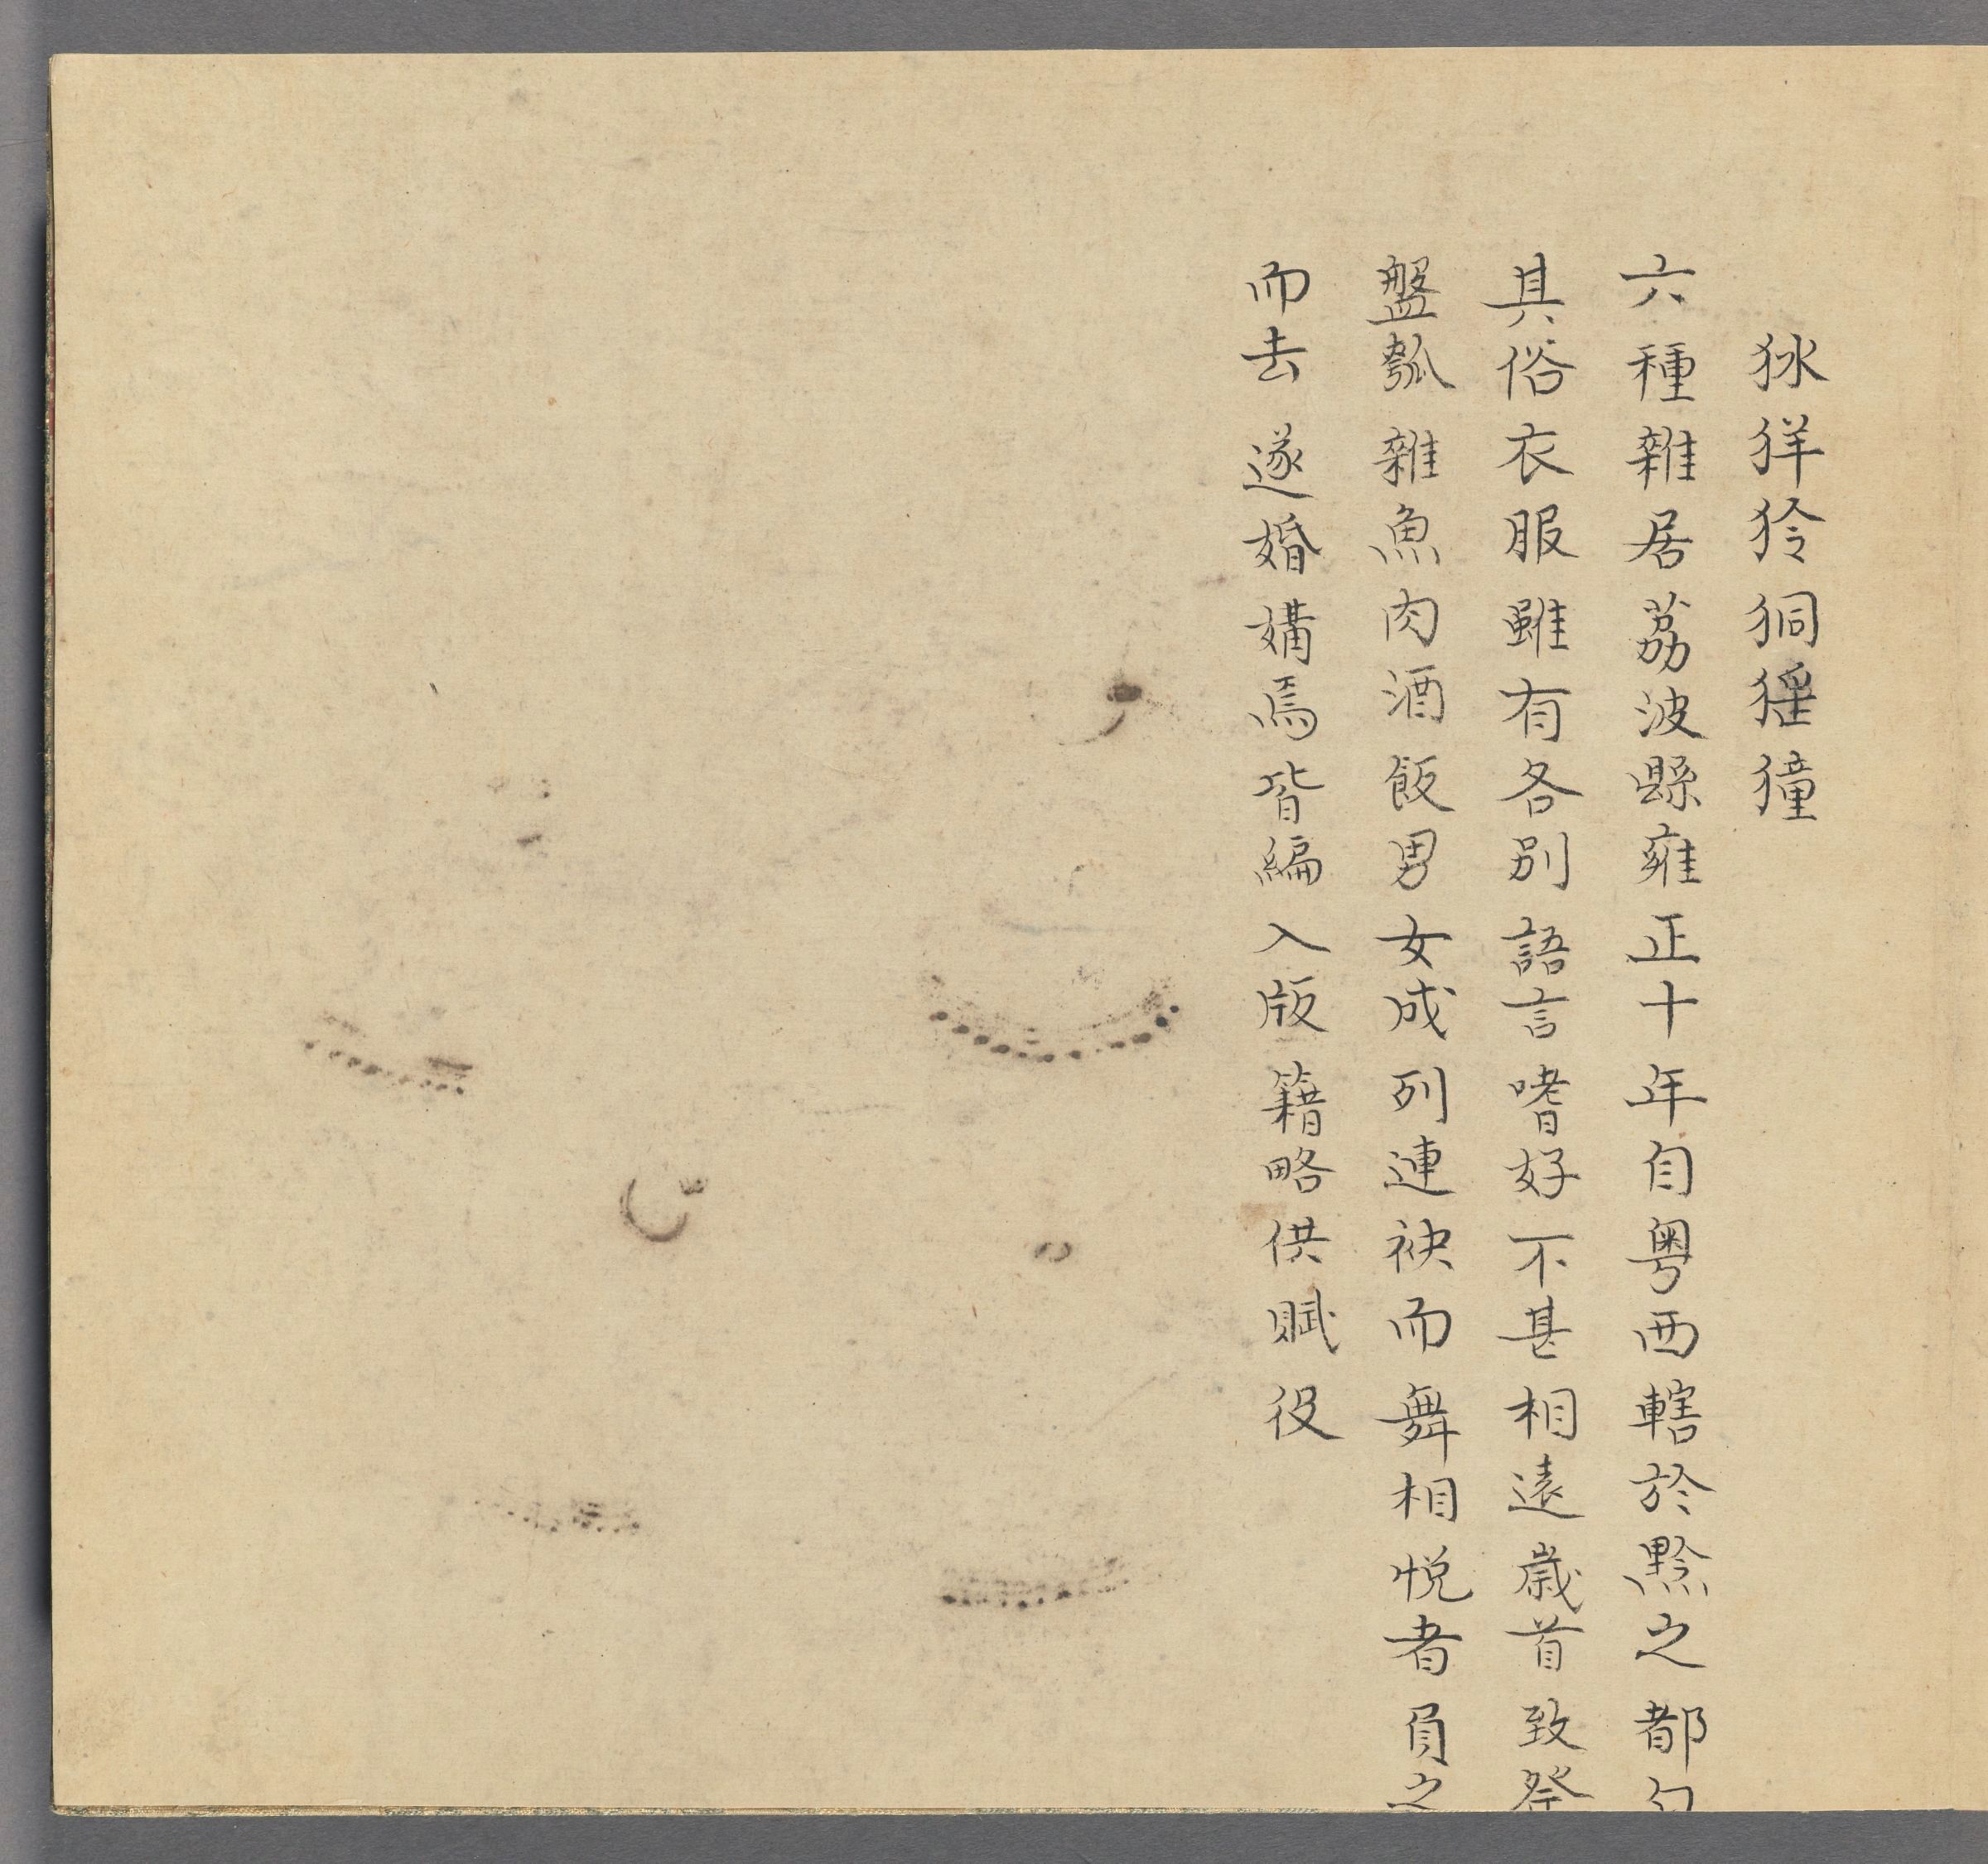 犾㹻狑狪猺獞
六種雜居荔波縣雍正十年自粵西轄於黔之都勻
其俗衣服雖有各別語言嗜好不甚相遠歲首致祭
盤瓠雜魚肉酒飯男女成列連袂而舞相悅者負之
而去遂婚媾焉皆編入版籍略供賦役